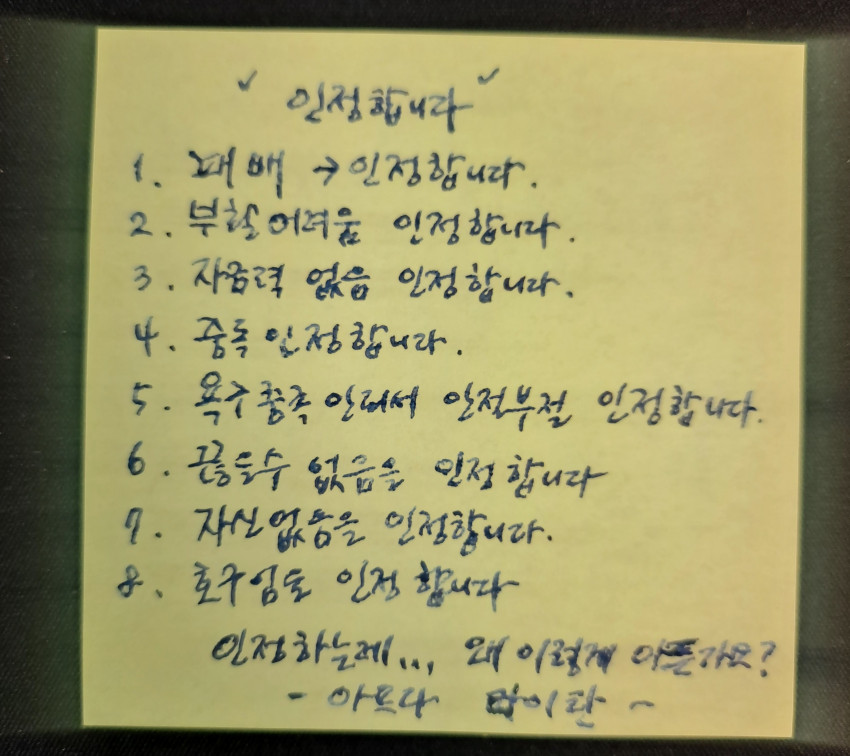 ✓ 인정합니다 ✓
1. 패배 → 인정합니다.
2. 부활어려움 인정합니다.
3. 자금력 없음 인정합니다.
4. 중독 인정합니다.
5. 욕구충족 안되서 안절부절 인정합니다.
6. 끊을수 없음을 인정합니다
7. 자신없음을 인정합니다.
8. 호구임도 인정합니다
인정하는데... 왜 이렇게 아픈가요?
- 아프다 많이 ~